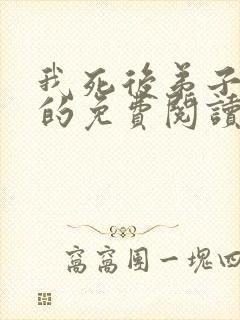 我死後弟子
的免費閱讀
窩窩團一塊四